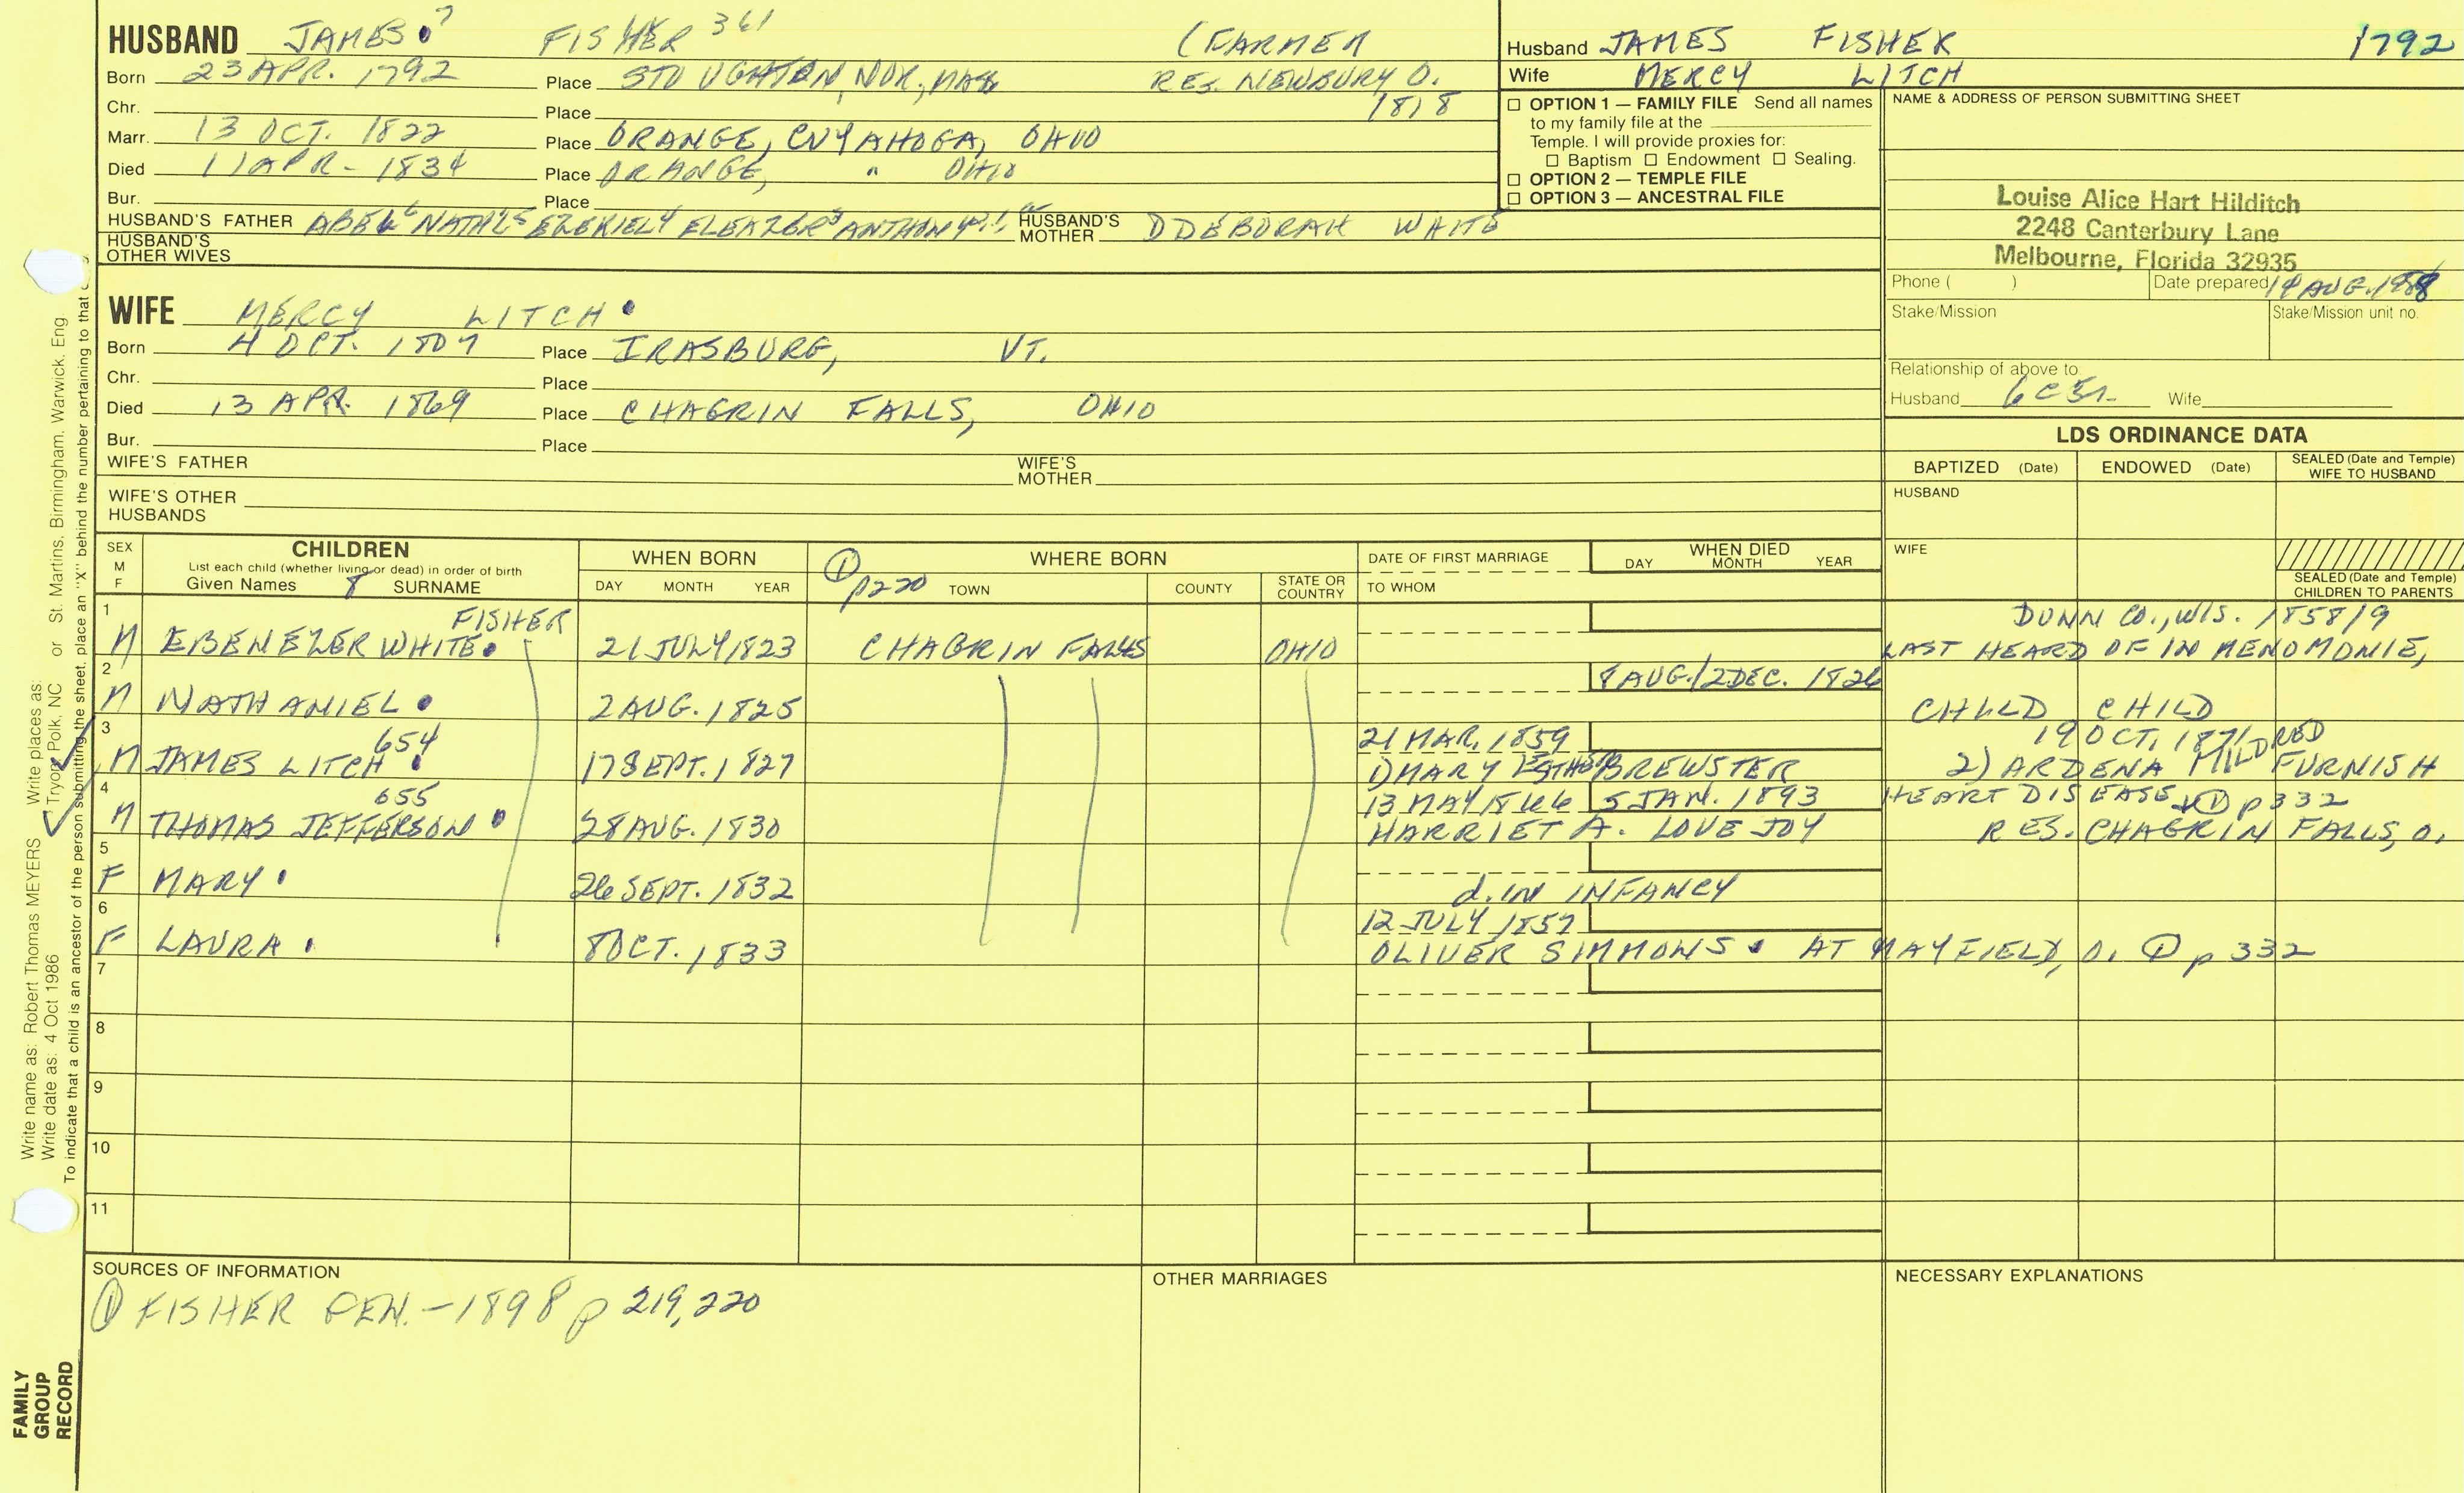 HUSBAND JAMES 7 FISHER 361 (FARMER
Born 23 APR. 1792 Place STOUGHTON, NOR, MASS RES. NEWBURY O.
Chr. Place 1818
Marr. 13 OCT. 1822 Place ORANGE, CUYAHOGA, OHIO
Died 11 APR - 1834 Place ORANGE, " OHIO
Bur. Place
HUSBAND'S FATHER ABEL 6 NATH'L 5 EZEKIEL 4 ELEAZER 3 ANTHONY HUSBAND'S MOTHER DDEBORAH WHITE
HUSBAND'S OTHER WIVES
WIFE MERCY LITCH
Born 4 OCT. 1807 Place IRASBURG, VT.
Chr. Place
Died 13 APR. 1869 Place CHAGRIN FALLS, OHIO
Bur. Place
WIFE'S FATHER WIFE'S MOTHER
WIFE'S OTHER HUSBANDS
Husband JAMES FISHER 1792
Wife MERCY LITCH
☐ OPTION 1 — FAMILY FILE Send all names
to my family file at the
Temple. I will provide proxies for:
☐ Baptism ☐ Endowment ☐ Sealing.
☐ OPTION 2 — TEMPLE FILE
☐ OPTION 3 — ANCESTRAL FILE
NAME & ADDRESS OF PERSON SUBMITTING SHEET
Louise Alice Hart Hilditch
2248 Canterbury Lane
Melbourne, Florida 32935
Phone ( ) Date prepared 14 AUG. 1988
Stake/Mission Stake/Mission unit no.
Relationship of above to
Husband 6C5R Wife
LDS ORDINANCE DATA
BAPTIZED (Date) ENDOWED (Date) SEALED (Date and Temple) WIFE TO HUSBAND
HUSBAND
WIFE
SEALED (Date and Temple) CHILDREN TO PARENTS
SEX M F
CHILDREN
List each child (whether living or dead) in order of birth
Given Names 8 SURNAME
WHEN BORN
DAY MONTH YEAR
① p220 WHERE BORN
TOWN COUNTY STATE OR COUNTRY
DATE OF FIRST MARRIAGE
TO WHOM
WHEN DIED
DAY MONTH YEAR
1 FISHER DUNN CO., WIS. 1858/9
M EBENEZER WHITE 21 JULY 1823 CHAGRIN FALLS OHIO LAST HEARD OF IN MENOMONIE,
2 8 AUG./2 DEC. 1826
M NATHANIEL 2 AUG. 1825 CHILD CHILD
3 654 21 MAR. 1859 19 OCT. 1871
M JAMES LITCH 17 SEPT. 1827 1) MARY ESTHER BREWSTER 2) ARDENA MILDRED FURNISH
4 655 13 MAY 1866 5 JAN. 1893 HEART DISEASE ① p 332
M THOMAS JEFFERSON 28 AUG. 1830 HARRIET A. LOVEJOY RES. CHAGRIN FALLS, O.
5
F MARY 26 SEPT. 1832 d. IN INFANCY
6 12 JULY 1857
F LAURA 8 OCT. 1833 OLIVER SIMMONS AT MAYFIELD, O. ① p 332
7
8
9
10
11
SOURCES OF INFORMATION
① FISHER GEN. - 1898 p 219, 220
OTHER MARRIAGES
NECESSARY EXPLANATIONS
Write name as: Robert Thomas MEYERS Write places as:
Write date as: 4 Oct 1986 Tryon, Polk, NC or St. Martins, Birmingham, Warwick, Eng
To indicate that a child is an ancestor of the person submitting the sheet, place an "X" behind the number pertaining to that
FAMILY
GROUP
RECORD